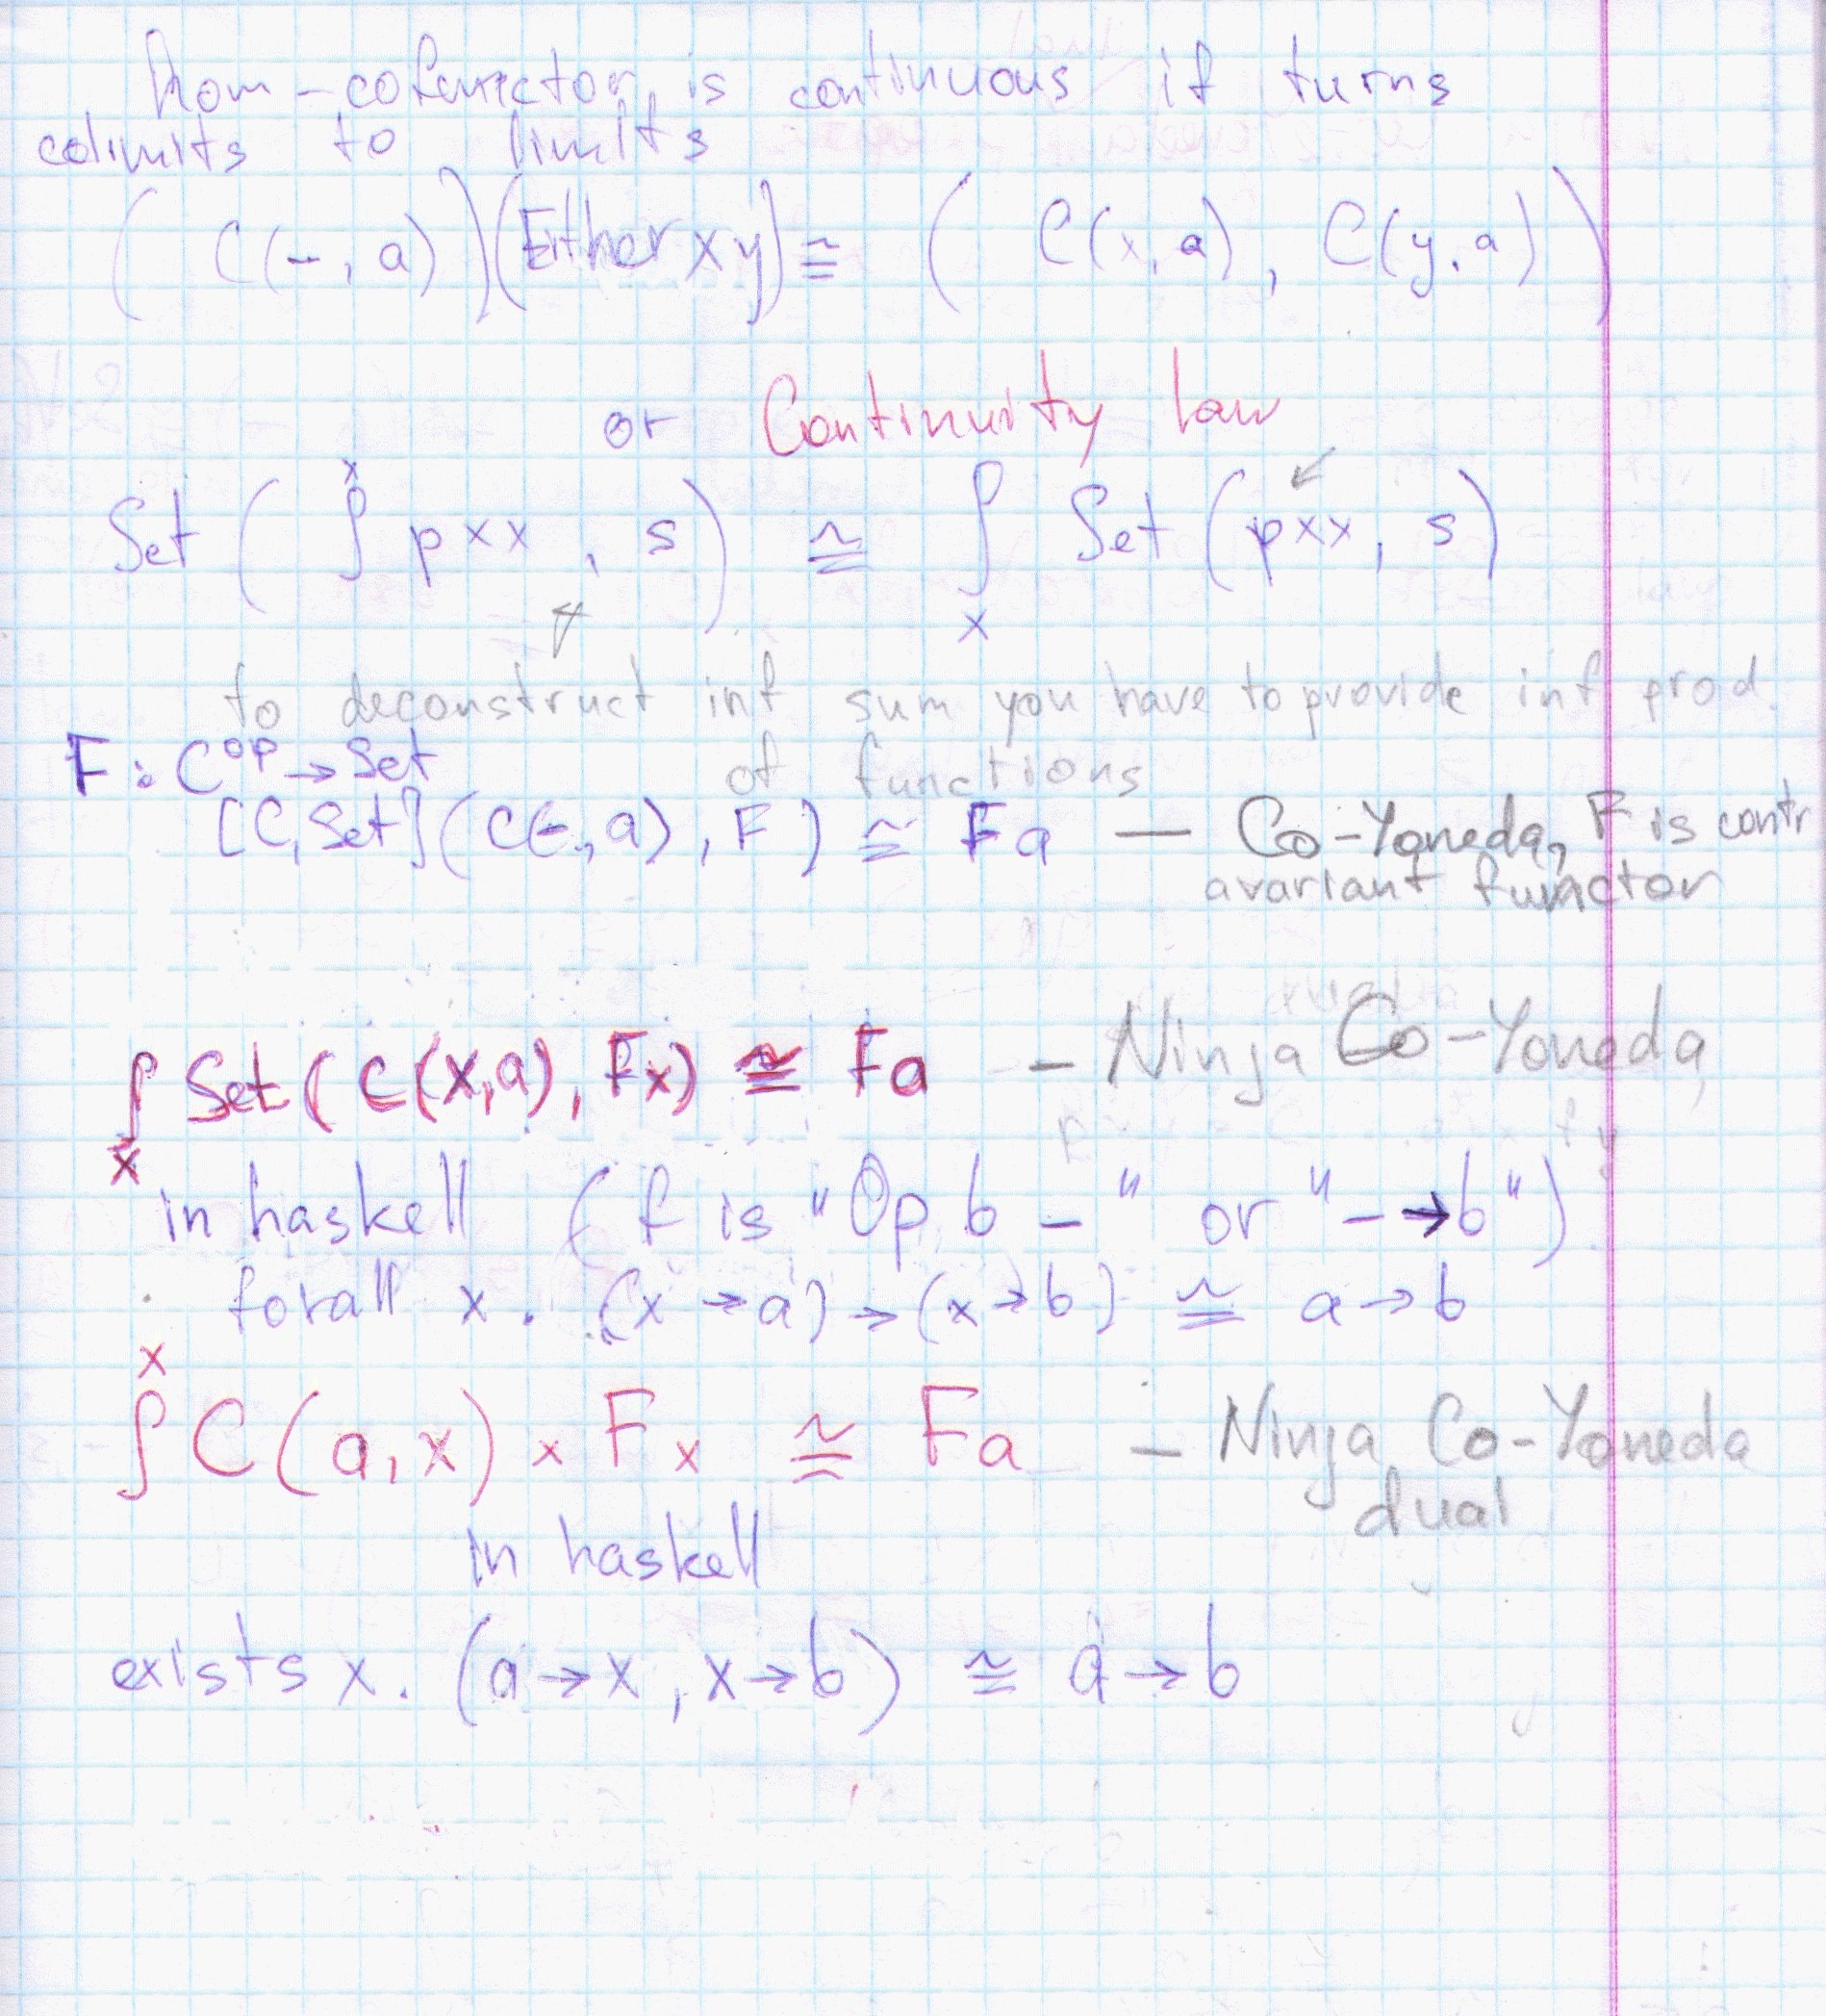 hom-cofunctor, is continuous if turns
colimits to limits
( C(-, a) ) (Either x y) ≅ ( C(x, a), C(y, a) )
or Continuity law
Set ( ∫ˣ p x x , s ) ≅ ∫ₓ Set ( p x x, s )
to deconstruct inf sum you have to provide inf prod.
of functions
F : C^op → Set
[C, Set] ( C(-, a) , F ) ≅ F a — Co-Yoneda, F is contr
avariant functor
∫ₓ Set ( C(x, a), F x ) ≅ F a - Ninja Co-Yoneda
in haskell ( f is "Op b -" or "- → b" )
forall x. (x → a) → (x → b) ≅ a → b
∫ˣ C ( a, x ) × F x ≅ F a - Ninja Co-Yoneda
dual
in haskell
exists x. (a → x, x → b) ≅ a → b